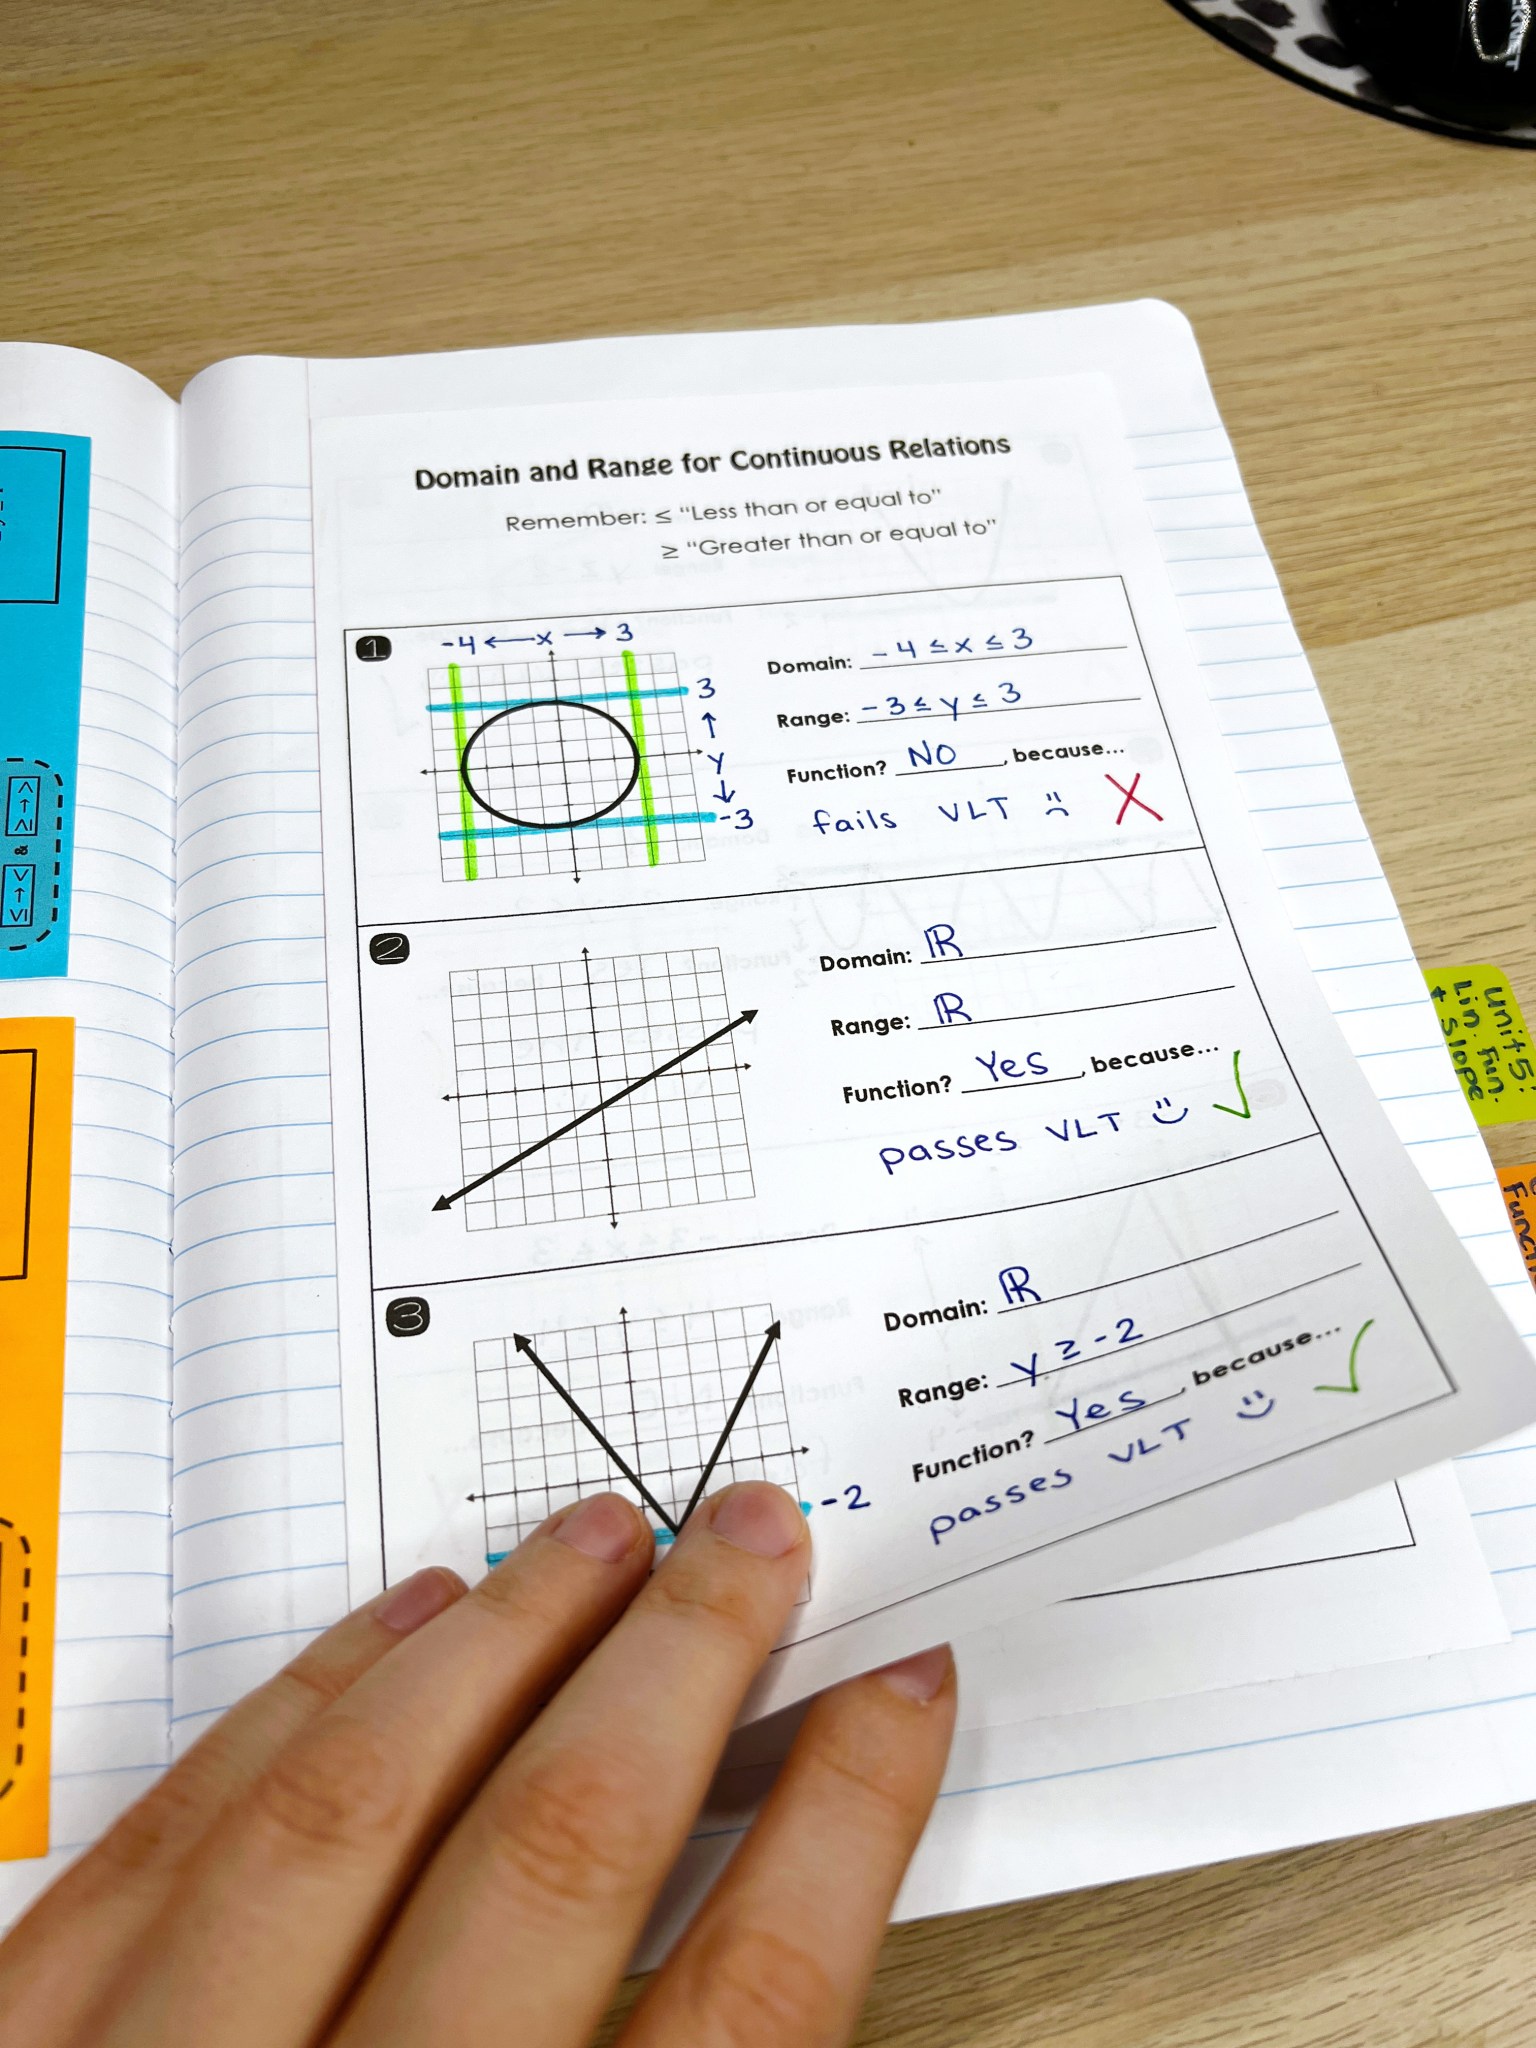 Domain and Range for Continuous Relations
Remember: ≤ "Less than or equal to"
≥ "Greater than or equal to"
1
-4 ← x → 3
3
↑
y
↓
-3
Domain: -4 ≤ x ≤ 3
Range: -3 ≤ y ≤ 3
Function? NO, because...
fails VLT ☹ X
2
Domain: ℝ
Range: ℝ
Function? Yes, because...
passes VLT ☺ ✓
3
-2
Domain: ℝ
Range: y ≥ -2
Function? Yes, because...
passes VLT ☺ ✓
Unit 5:
Lin. Fun.
+ Slope
< → ≤
&
> → ≥